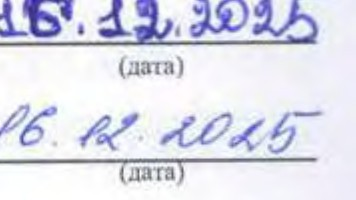 16.12.2025
(дата)
16.12.2025
(дата)